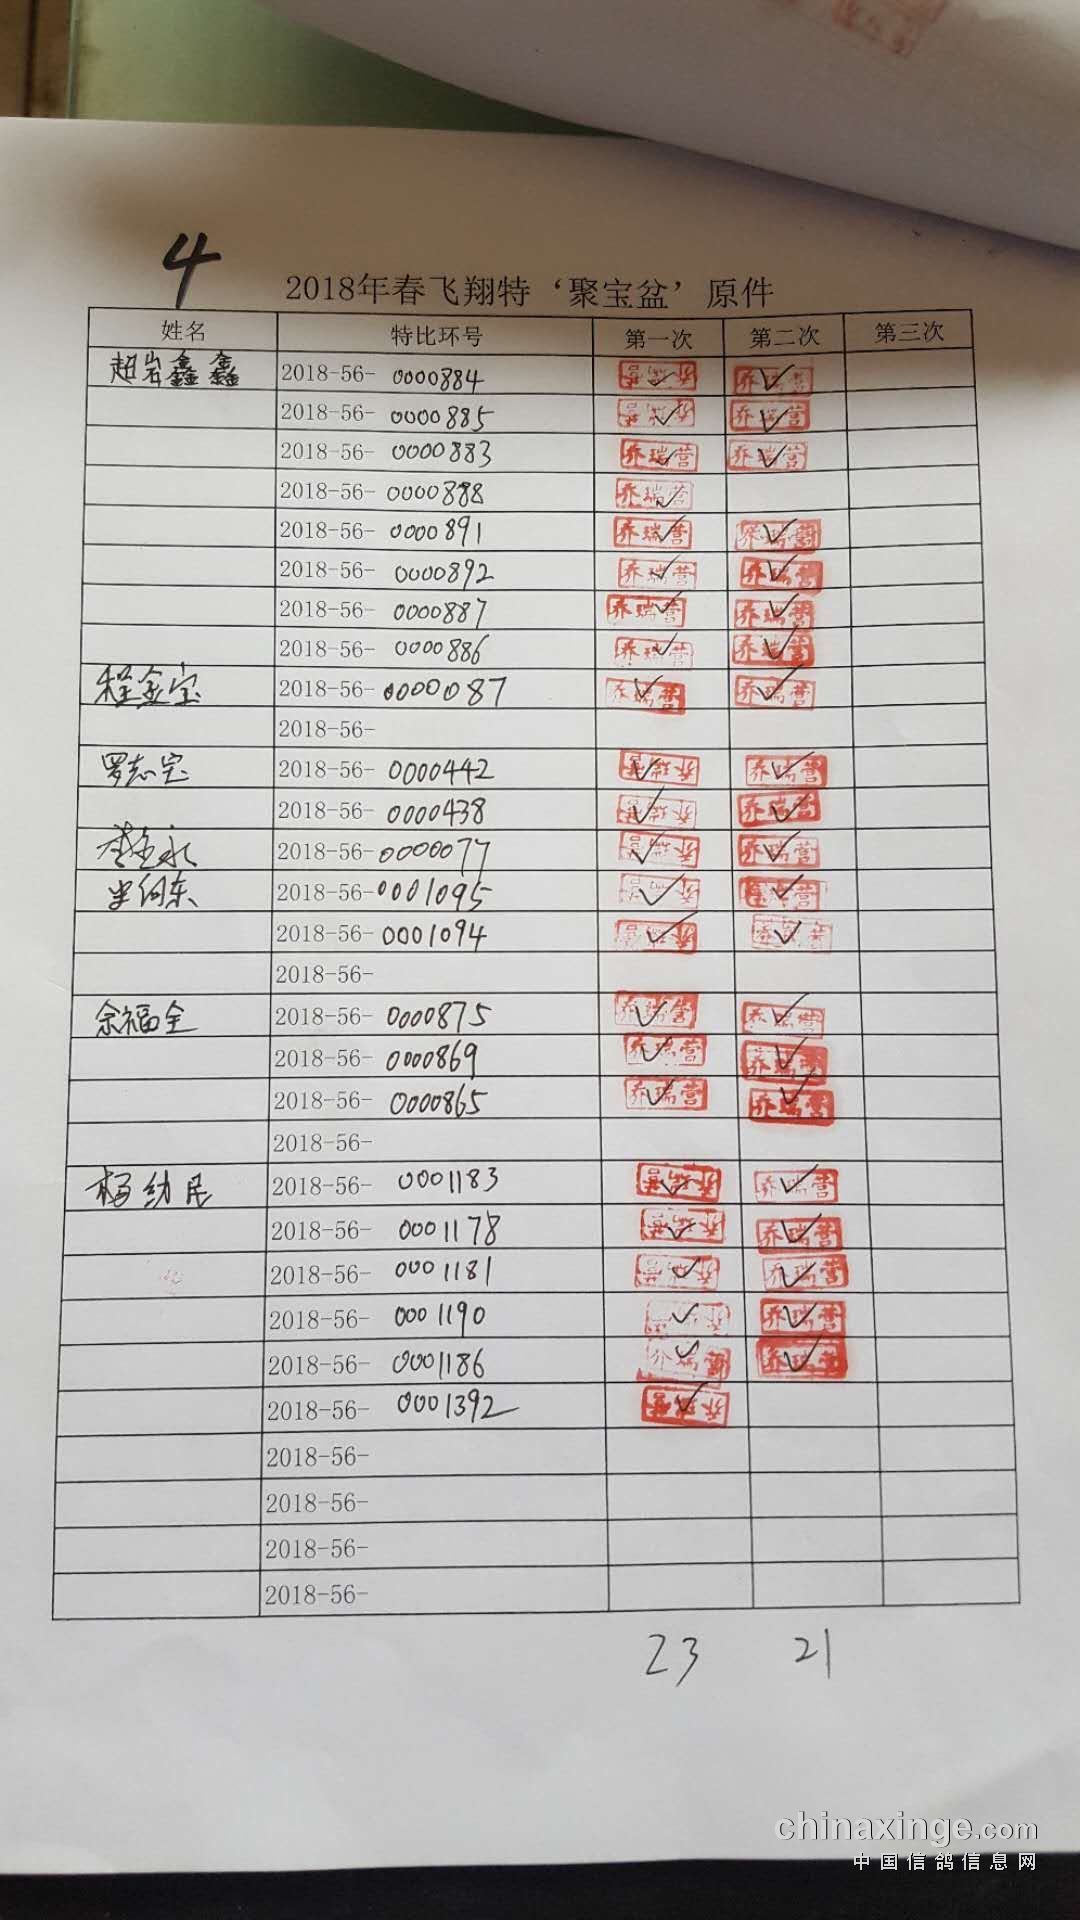 4
2018年春飞翔特‘聚宝盆’原件
姓名 特比环号 第一次 第二次 第三次
赵岩鑫鑫 2018-56- 0000884 乔瑞营 ✓ 乔瑞营 ✓
2018-56- 0000885 乔瑞营 ✓ 乔瑞营 ✓
2018-56- 0000883 乔瑞营 ✓ 乔瑞营 ✓
2018-56- 0000888 乔瑞营 ✓
2018-56- 0000891 乔瑞营 ✓ 乔瑞营 ✓
2018-56- 0000892 乔瑞营 ✓ 乔瑞营 ✓
2018-56- 0000887 乔瑞营 ✓ 乔瑞营 ✓
2018-56- 0000886 乔瑞营 ✓ 乔瑞营 ✓
程金宝 2018-56- 0000087 乔瑞营 ✓ 乔瑞营 ✓
2018-56-
罗志宝 2018-56- 0000442 乔瑞营 ✓ 乔瑞营 ✓
2018-56- 0000438 乔瑞营 ✓ 乔瑞营 ✓
李金永 2018-56- 0000077 乔瑞营 ✓ 乔瑞营 ✓
2018-56- 0001095 乔瑞营 ✓ 乔瑞营 ✓
2018-56- 0001094 乔瑞营 ✓ 乔瑞营 ✓
2018-56-
余福全 2018-56- 0000875 乔瑞营 ✓ 乔瑞营 ✓
2018-56- 0000869 乔瑞营 ✓ 乔瑞营 ✓
2018-56- 0000865 乔瑞营 ✓ 乔瑞营 ✓
2018-56-
杨幼民 2018-56- 0001183 乔瑞营 ✓ 乔瑞营 ✓
2018-56- 0001178 乔瑞营 ✓ 乔瑞营 ✓
2018-56- 0001181 乔瑞营 ✓ 乔瑞营 ✓
2018-56- 0001190 乔瑞营 ✓ 乔瑞营 ✓
2018-56- 0001186 乔瑞营 ✓ 乔瑞营 ✓
2018-56- 0001392 乔瑞营 ✓
2018-56-
2018-56-
2018-56-
2018-56-
23 21
chinaxinge.com
中国信鸽信息网